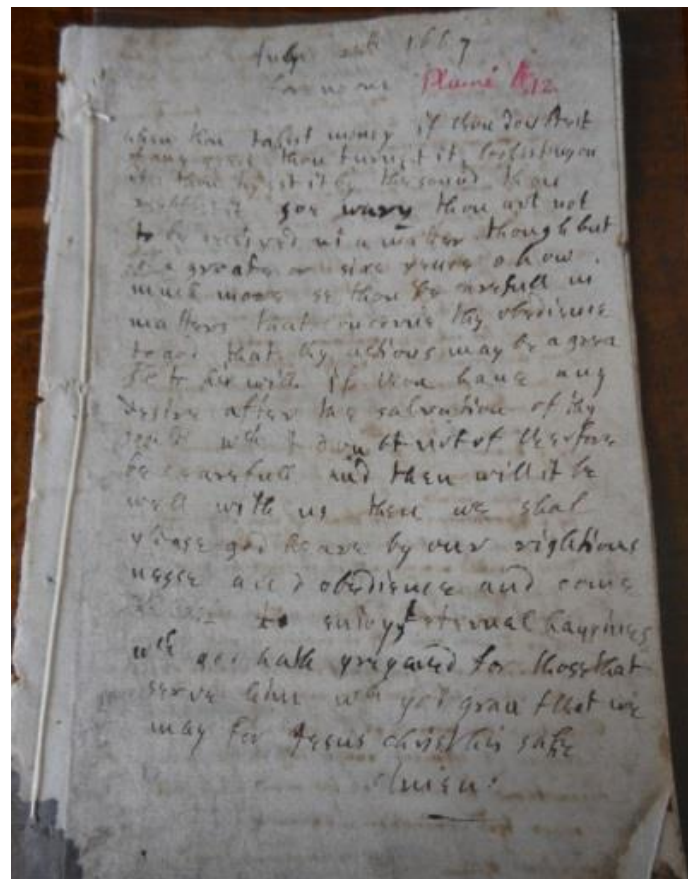 July 1667
Plume
when thou takest money if thou doe
thou turnest it, lookest upon
it thou by the sound thou
soe wary thou art not
to be deceived in a matter though but
of a greate or sixe pence o how
much more se thou be carefull in
matters that concerne thy obedience
to god that thy actions may be agrea
ble to his will if thou have any
desire after the salvation of thy
soule wch I doubt not of therfore
be carefull and then will it be
well with us then we shal
please god heare by our rightious
nesse and obedience and come
to enjoy eternal happines
wch god hath prepared for those that
serve him wch god graunt that we
may for Jesus christ his sake
Amen: